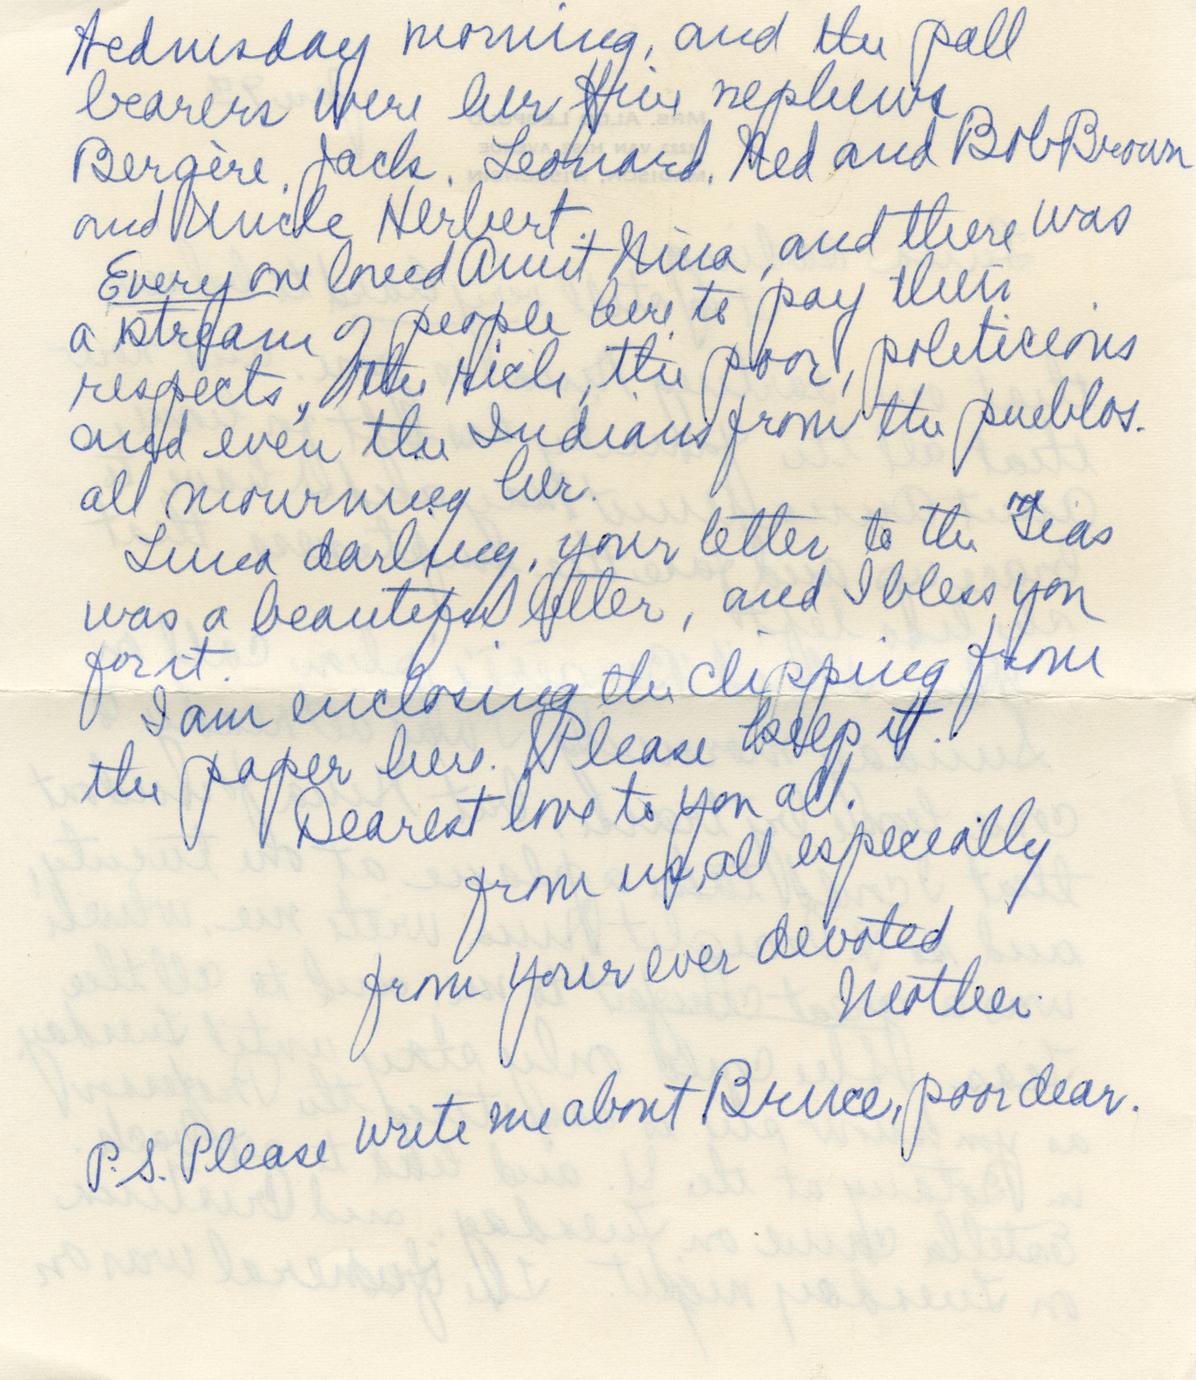 Wednesday morning, and the pall
bearers were her five nephews
Bergère, Jack, Leonard, Ned and Bob Brown
and Uncle Herbert.
Every one loved Aunt Nina, and there was
a stream of people here to pay their
respects, the rich, the poor, politicians
and even the Indians from the pueblos.
all mourning her.
Luna darling, your letter to the Tias
was a beautiful letter, and I bless you
for it.
I am enclosing the clipping from
the paper here. Please keep it.
Dearest love to you all.
from us, all especially
from your ever devoted
Mother.
P.S. Please write me about Bruce, poor dear.